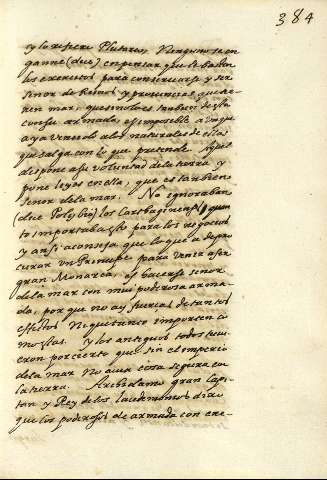 384
y lo refiere Plutarco. Ninguno se en
gañe (dice) en pensar que le bastan
los exercitos para conservarse y ser
señor de Reinos y provincias que tie
nen mar, que si no lo es tambien de esta
con su armada, es imposible a unque
aya vencido a los naturales de ellas
que salga con lo que pretende. Aquel
dispone a su voluntad de la tierra y
pone leyes en ella, que es tanbien
señor de la mar. No ignoraban
(dice Polybio) los Cartagineses quan
to importaba esto para los negocios
y ansi aconseja que lo que a de pro
curar un Principe para venir a ser
gran Monarca, es hacerse señor
de la mar con mui poderosa arma
da, por que no ay fuercas de tantos
effectos ni que tanto importen co
mo estas. Y los antiguos todos tuvi
eron por cierto que sin el imperio
de la mar no avia cosa segura en
la tierra. Archidamo gran Capi
tan y Rey de los Lacedemonios dixo
que los poderosos de armada con cre-